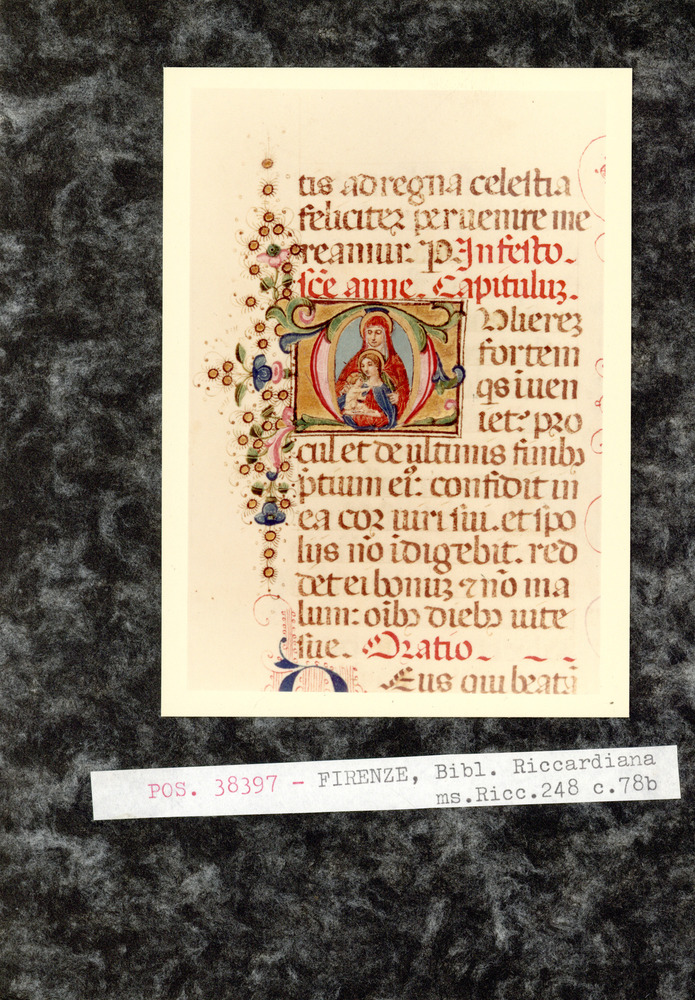 tis ad regna celestia
feliciter peruenire me
reamur. P In festo.
sc̄e anne. Capituluz.
Mulierez
fortem
q̄s iuen
iet: pro
cul et de ultimis finibꝫ
p̄tium eī: confidit in
ea cor uiri sui. et spo
lijs nō īdigebit. red
det ei bonuz ⁊ nō ma
lum: oībꝫ diebꝫ uite
sue. Oratio.
Deus qui beatā
POS. 38397 - FIRENZE, Bibl. Riccardiana
ms.Ricc.248 c.78b